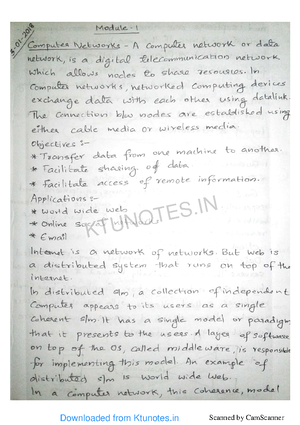 5-01-2018
Module-1
Computer Networks - A computer network or data
network, is a digital telecommunication network
which allows nodes to share resources. In
computer networks, networked computing devices
exchange data with each other using datalink.
The connection b/w nodes are established using
either cable media or wireless media.
Objectives :-
* Transfer data from one machine to another.
* Facilitate sharing of data
* Facilitate access of remote information.
Applications :-
* World wide web
* Online
* Email
KTUNOTES.IN
Internet is a network of networks. But web is
a distributed system that runs on top of the
internet.
In distributed s/m, a collection of independent
computer appears to its users as a single
coherent s/m. It has a single model or paradigm
that it presents to the users. A layer of software
on top of the OS, called middleware, is responsible
for implementing this model. An example of
distributed s/m is world wide web.
In a computer network, this coherence, model
Downloaded from Ktunotes.in
Scanned by CamScanner